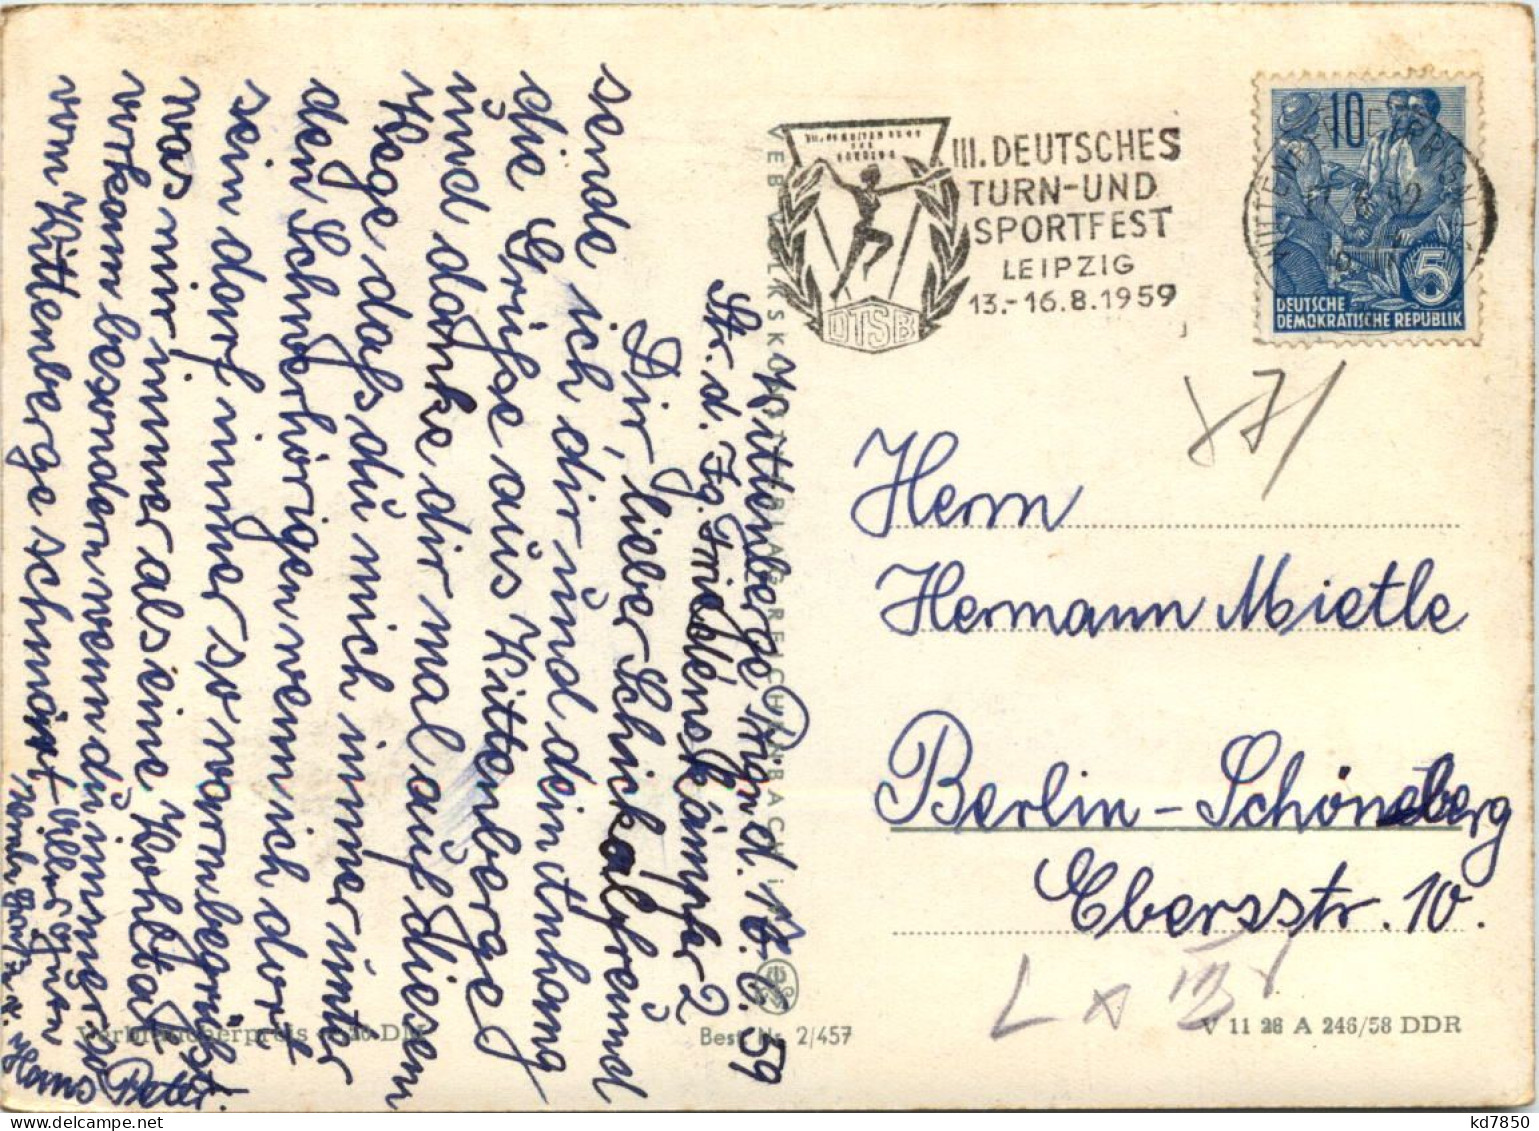 Wittenberge Prign. d. 16.6.59
Str. d. Jg. Friedenskämpfer 2
Dir, lieber Schickalfreund
sende ich dir und dein Anhang
die Grüße aus Wittenberge
und danke dir mal auf diesem
Wege daß du mich immer unter
den Schwerhörigen wenn ich dort
sein darf immer so warm begrüßt
was mir immer als eine Wohltat
vorkam besonders wenn du immer so
vom Wittenberge schwärmst
Peter
Hans
III. DEUTSCHES
TURN-UND
SPORTFEST
LEIPZIG
13.-16.8.1959
DTSB
10
5
DEUTSCHE
DEMOKRATISCHE REPUBLIK
Herrn
Hermann Mietle
Berlin-Schöneberg
Ebersstr. 10.
VEB VOLKSKUNSTVERLAG REICHENBACH i. V.
Best. Nr. 2/457
V 11 28 A 246/58 DDR
kd7850